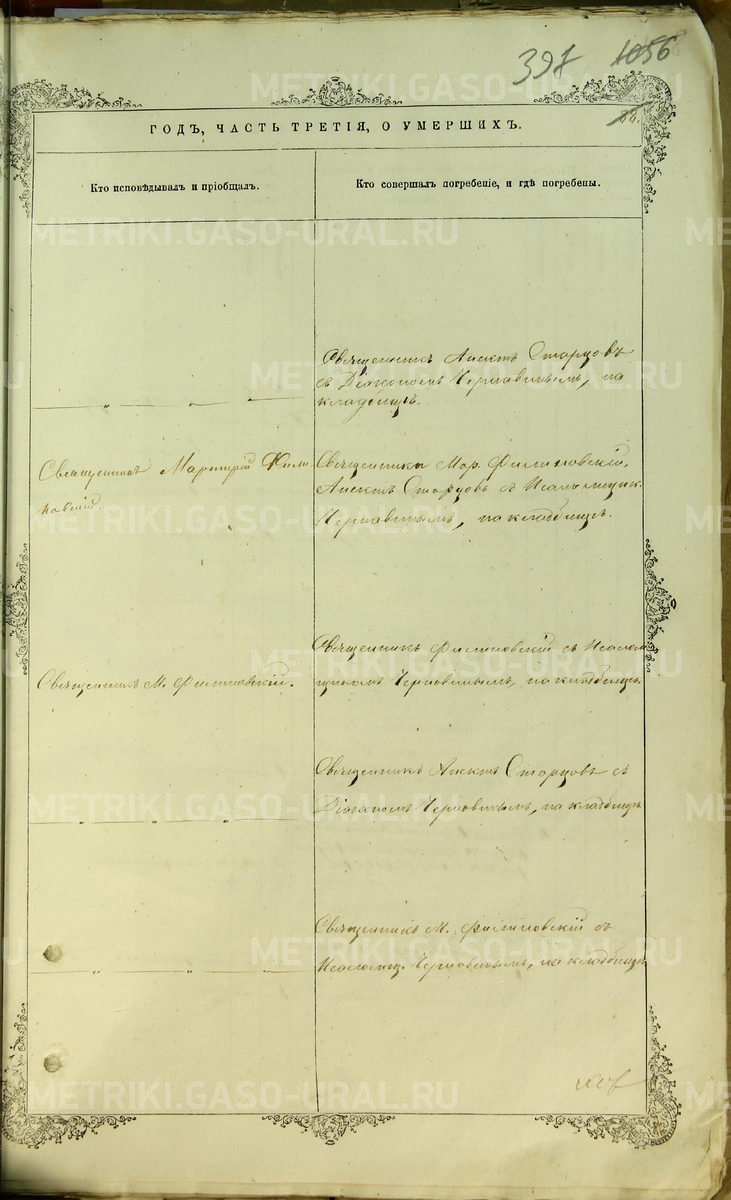 397 1056
ГОДЪ, ЧАСТЬ ТРЕТІЯ, О УМЕРШИХЪ.
Кто исповѣдывалъ и пріобщалъ.
Кто совершалъ погребеніе, и гдѣ погребены.
Священникъ Анектъ Старцовъ
съ Діакономъ Чернавинымъ, на
кладбищѣ.
Священникъ Мартирій Фили
повскій.
Священники Мар. Филиповскій,
Анектъ Старцовъ съ Псаломщик.
Чернавинымъ, на кладбищѣ.
Священникъ М. Филиповскій.
Священникъ Филиповскій съ Псалом
щикомъ Чернавинымъ, на кладбищѣ.
Священникъ Анектъ Старцовъ съ
Діакономъ Чернавинымъ, на кладбищѣ
Священникъ М. Филиповскій съ
Псаломщ. Чернавинымъ, на кладбищѣ
METRIKI.GASO-URAL.RU